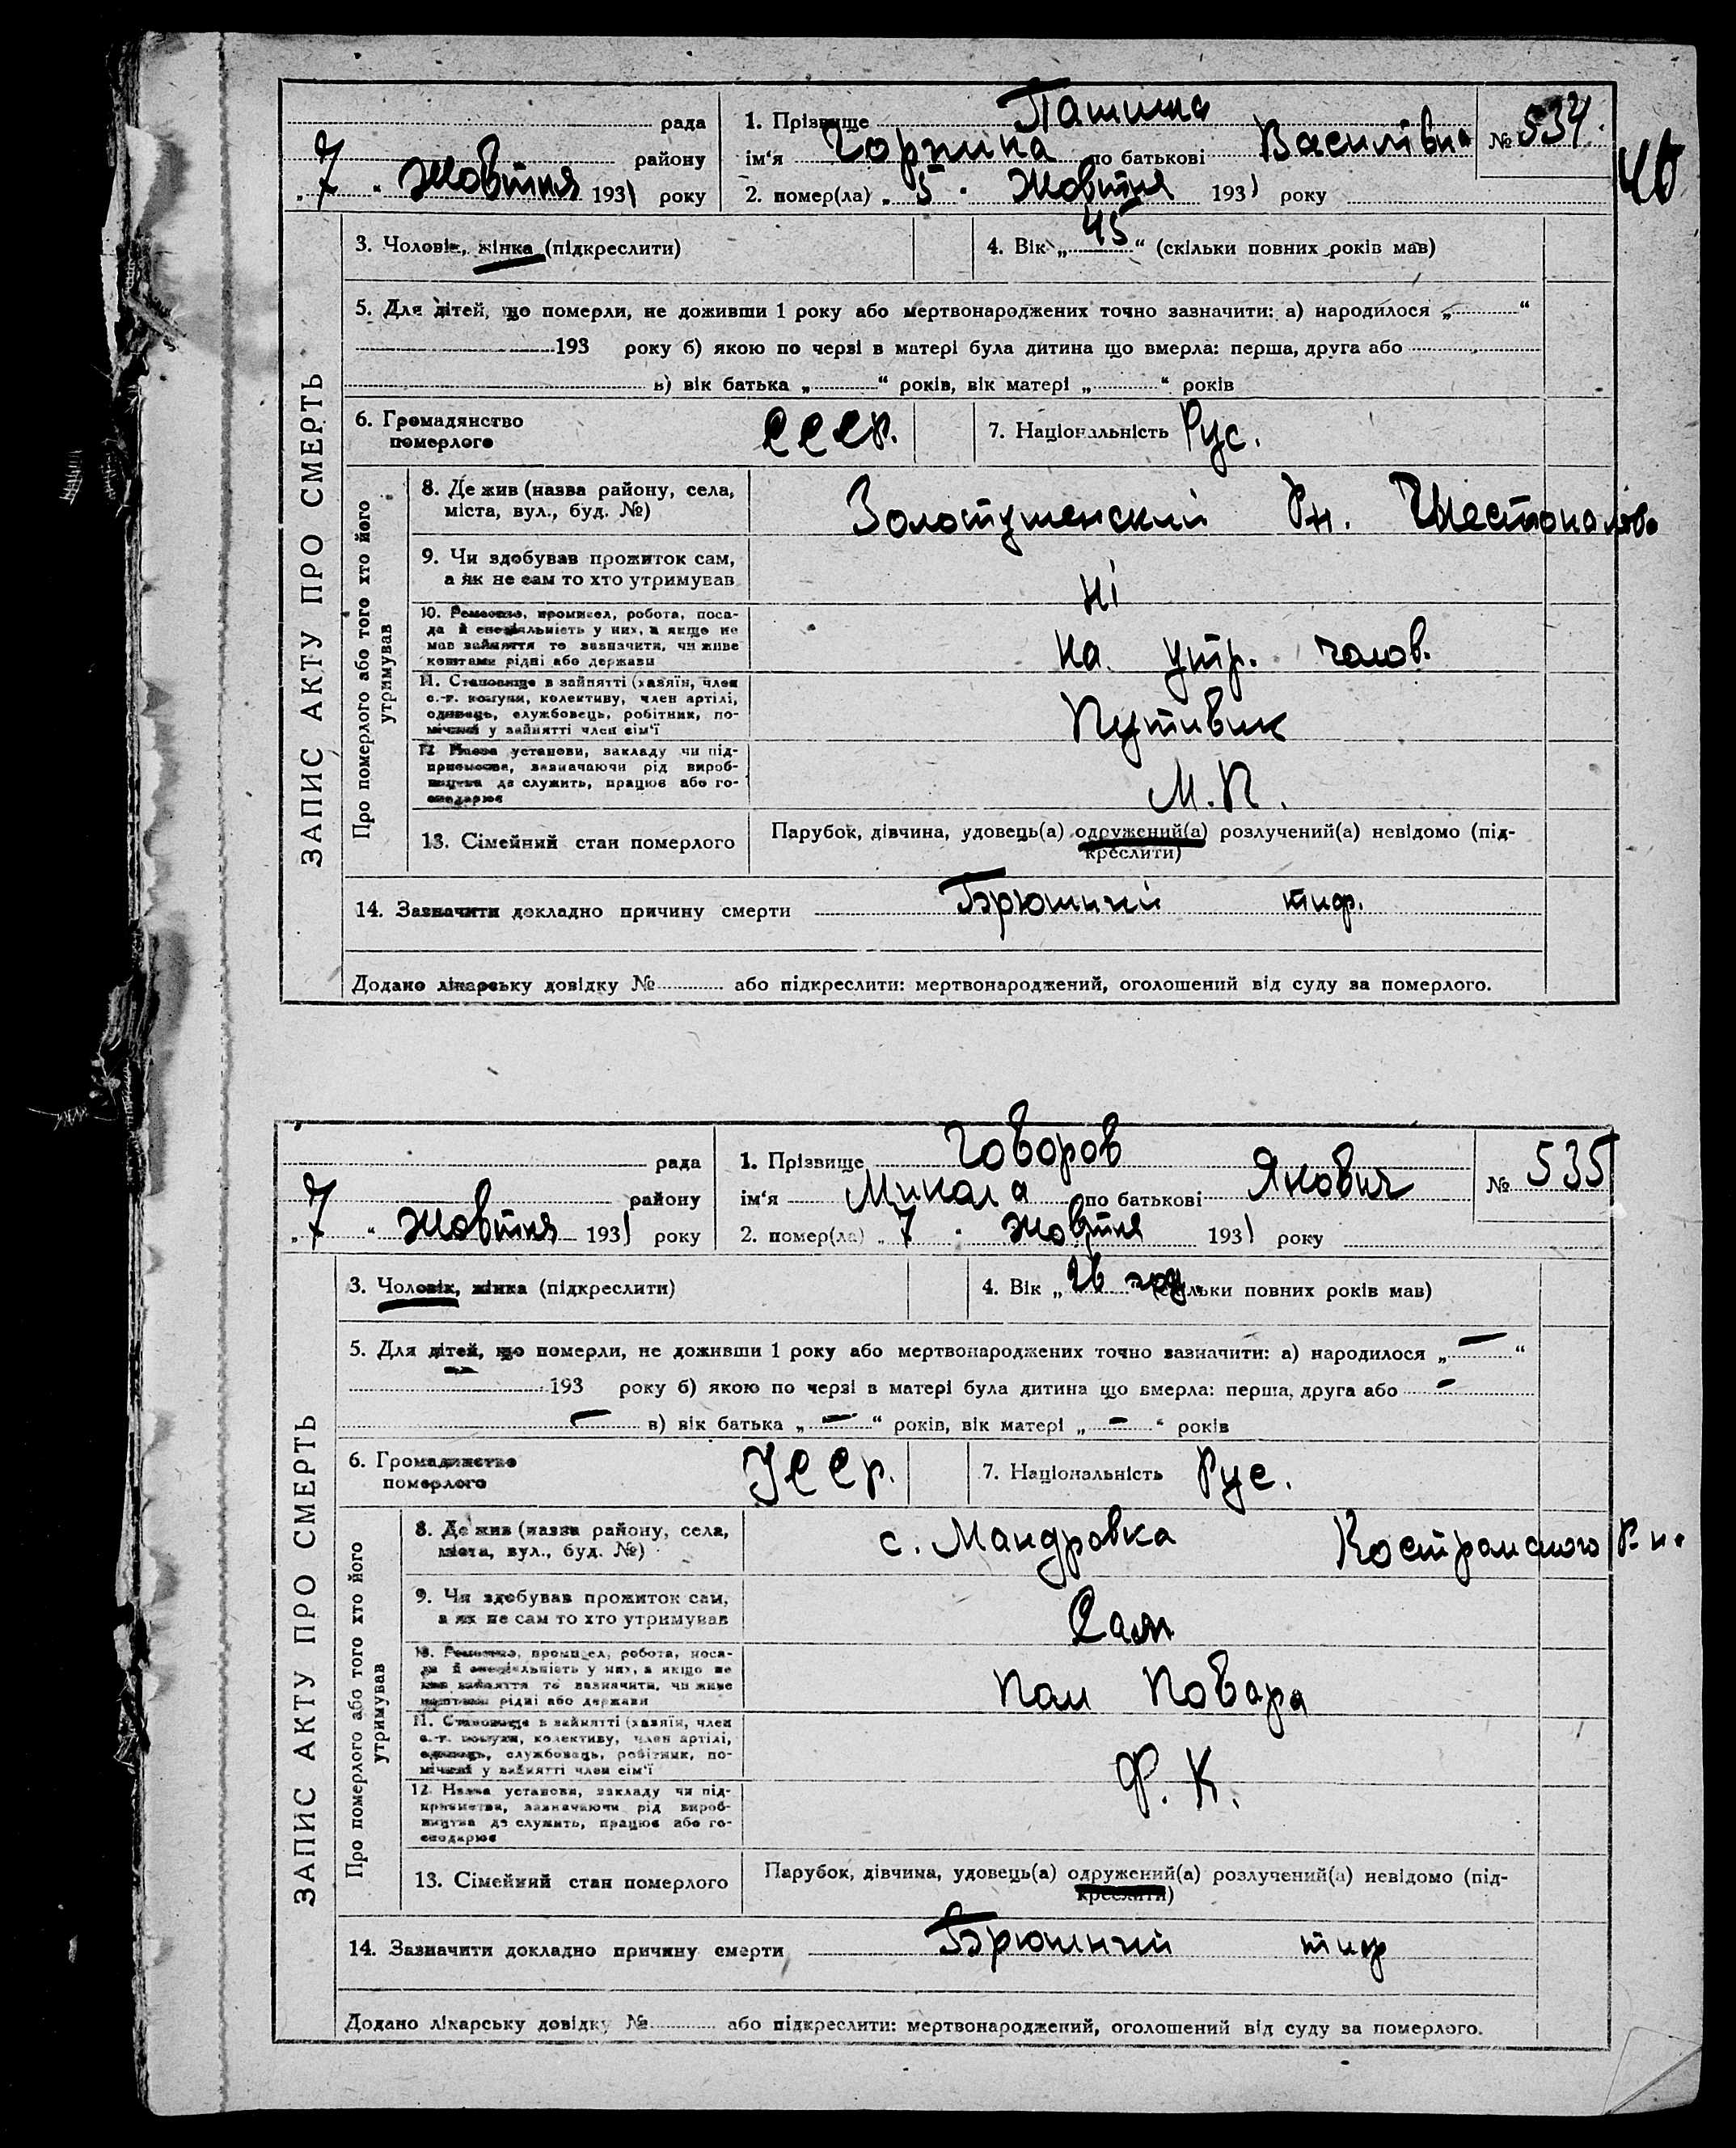 рада
району
„ 7 “ Жовтня 1931 року
1. Прізвище Пашина
ім'я Горпина по батькові Василівна
2. помер(ла) „ 5 “ Жовтня 1931 року
№ 534.
3. Чоловік, жінка (підкреслити)
4. Вік „ 45 “ (скільки повних років мав)
5. Для дітей, що померли, не доживши 1 року або мертвонароджених точно зазначити: а) народилося „ “
193 року б) якою по черзі в матері була дитина що вмерла: перша, друга або
в) вік батька „ “ років, вік матері „ “ років
6. Громадянство
померлого
СССР.
7. Національність Рус.
ЗАПИС АКТУ ПРО СМЕРТЬ
Про померлого або того хто його
утримував
8. Де жив (назва району, села,
міста, вул., буд. №)
Рн.
9. Чи здобував прожиток сам,
а як не сам то хто утримував
ні
10. Ремество, промисел, робота, поса-
да й спеціяльність у них, а якщо не
мав зайняття то зазначити, чи живе
коштами рідні або держави
на утр. чолов.
11. Становище в зайнятті (хазяїн, член
с.-г. комуни, колективу, член артілі,
одинець, службовець, робітник, по-
мічний у зайнятті член сім'ї
12. Назва установи, закладу чи під-
приємства, зазначаючи рід вироб-
ництва де служить, працює або го-
сподарює
М. П.
13. Сімейний стан померлого
Парубок, дівчина, удовець(а) одружений(а) розлучений(а) невідомо (під-
креслити)
14. Зазначити докладно причину смерти Брюшний тиф.
Додано лікарську довідку № або підкреслити: мертвонароджений, оголошений від суду за померлого.
рада
району
„ 7 “ Жовтня 1931 року
1. Прізвище Говоров
ім'я Микола по батькові Якович
2. помер(ла) „ 7 “ Жовтня 1931 року
№ 535
3. Чоловік, жінка (підкреслити)
4. Вік „ 26 (скільки повних років мав)
5. Для дітей, що померли, не доживши 1 року або мертвонароджених точно зазначити: а) народилося „ — “
193 року б) якою по черзі в матері була дитина що вмерла: перша, друга або —
— в) вік батька „ — “ років, вік матері „ — “ років
6. Громадянство
померлого
УССР.
7. Національність Рус.
ЗАПИС АКТУ ПРО СМЕРТЬ
Про померлого або того хто його
утримував
8. Де жив (назва району, села,
міста, вул., буд. №)
с. Мандровка Р-н.
9. Чи здобував прожиток сам,
а як не сам то хто утримував
Сам
10. Ремество, промисел, робота, поса-
да й спеціяльність у них, а якщо не
мав зайняття то зазначити, чи живе
коштами рідні або держави
Пом Повара
11. Становище в зайнятті (хазяїн, член
с.-г. комуни, колективу, член артілі,
одинець, службовець, робітник, по-
мічний у зайнятті член сім'ї
Ф. К.
12. Назва установи, закладу чи під-
приємства, зазначаючи рід вироб-
ництва де служить, працює або го-
сподарює
13. Сімейний стан померлого
Парубок, дівчина, удовець(а) одружений(а) розлучений(а) невідомо (під-
креслити)
14. Зазначити докладно причину смерти Брюшний тиф
Додано лікарську довідку № або підкреслити: мертвонароджений, оголошений від суду за померлого.